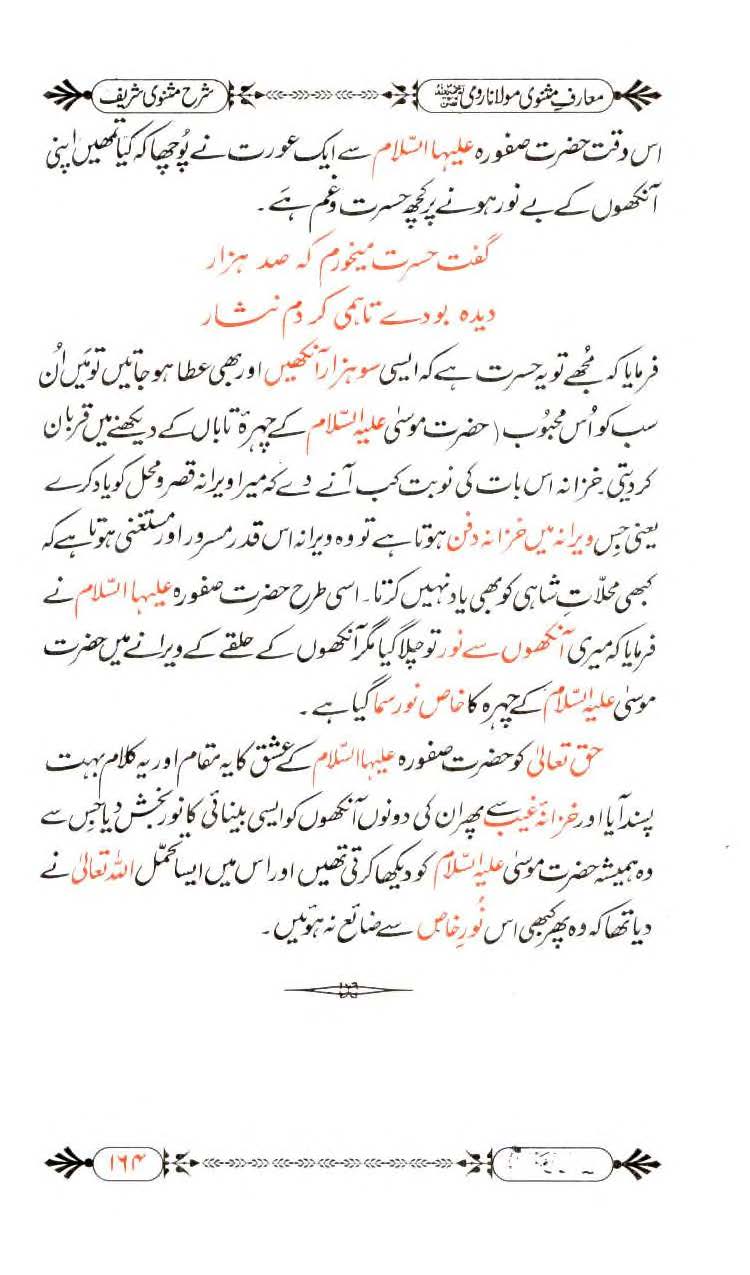 معارفِ مثنوی مولانا رومی
شرح مثنوی شریف
اس وقت حضرت صفورہ علیہا السّلام سے ایک عورت نے پُوچھا کہ کیا تمھیں اپنی
آنکھوں کے بے نور ہونے پر کچھ حسرت و غم ہَے۔
گفت حسرت میخورم کہ صد ہزار
دیدہ بودے تا ہمی کردم نثار
فرمایا کہ مُجھے تو یہ حسرت ہے کہ ایسی سو ہزار آنکھیں اور بھی عطا ہو جاتیں تو مَیں اُن
سب کو اُس محبُوب (حضرت موسیٰ علیہ السّلام کے چہرۂ تاباں کے دیکھنے میں قربان
کر دیتی۔ خزانہ اس بات کی نوبت کب آنے دے کہ میرا ویرانہ قصر و محل کو یاد کرے
یعنی جِس ویرانہ میں خزانہ دفن ہوتا ہے تو وہ ویرانہ اس قدر مسرور اور مستغنی ہوتا ہے کہ
کبھی محلّاتِ شاہی کو بھی یاد نہیں کرتا۔ اسی طرح حضرت صفورہ علیہا السّلام نے
فرمایا کہ میری آنکھوں سے نور تو چلا گیا مگر آنکھوں کے حلقے کے ویرانے میں حضرت
موسیٰ علیہ السّلام کے چہرہ کا خاص نور سما گیا ہے۔
حق تعالیٰ کو حضرت صفورہ علیہا السّلام کے عشق کا یہ مقام اور یہ کلام بہت
پسند آیا اور خزانۂ غیب سے پھر ان کی دونوں آنکھوں کو ایسی بینائی کا نور بخش دیا جِس سے
وہ ہمیشہ حضرت موسیٰ علیہ السّلام کو دیکھا کرتی تھیں اور اس میں ایسا تحمّل اللہ تعالیٰ نے
دیا تھا کہ وہ پھر کبھی اس نُورِ خاص سے ضائع نہ ہوئیں۔
۱۶۴